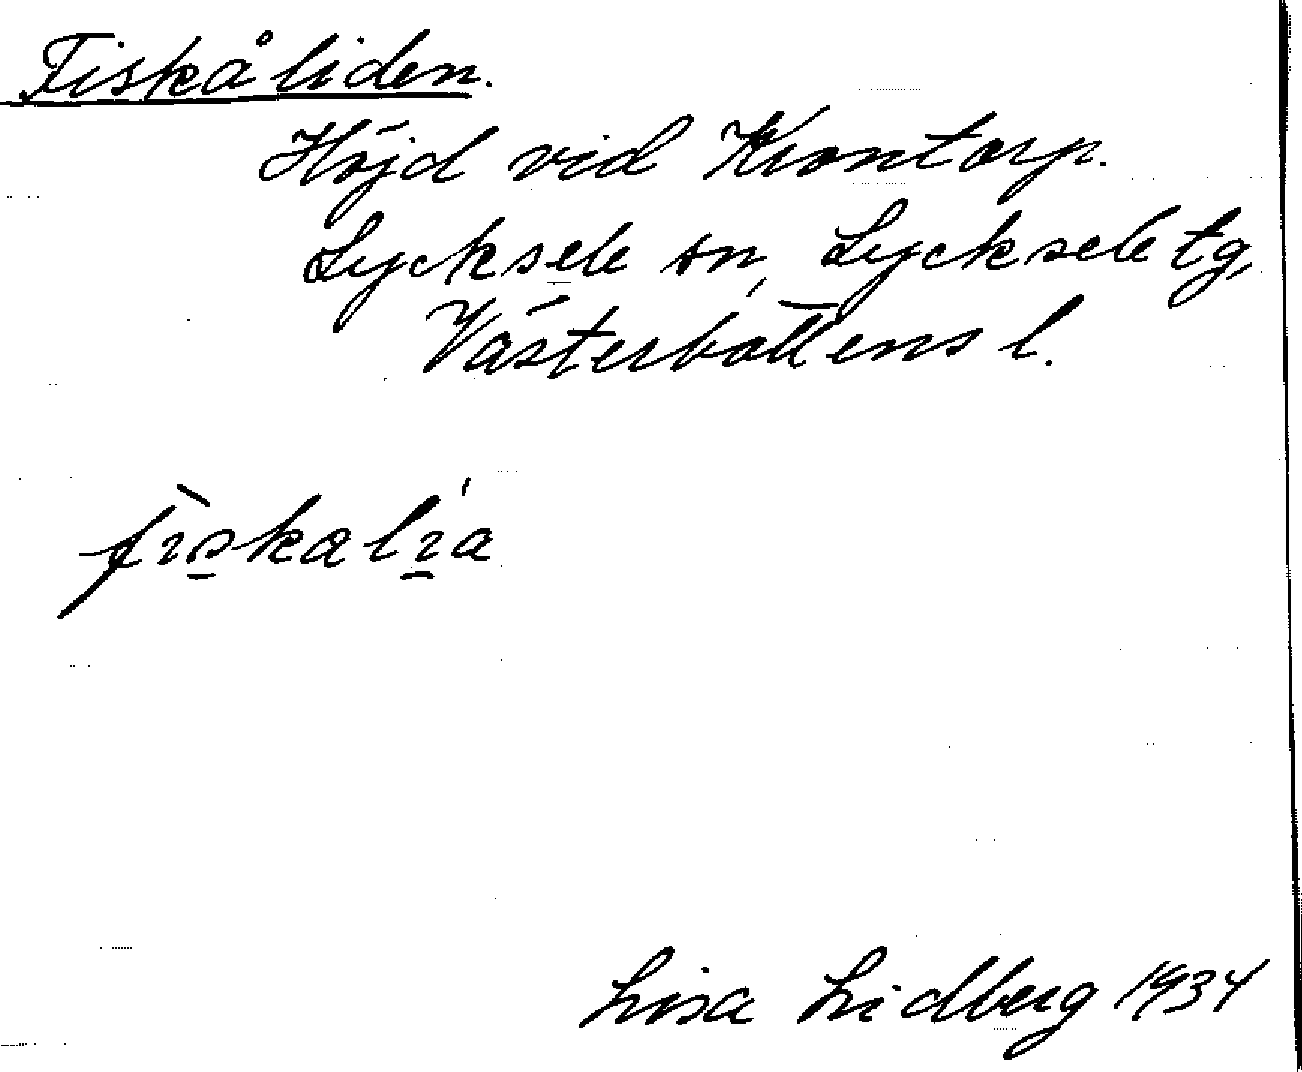 Fiskåliden.
Höjd vid Krontorp.
Lycksele sn, Lycksele tg,
Västerbottens l.
fìskalı́a
Lisa Lidberg 1934